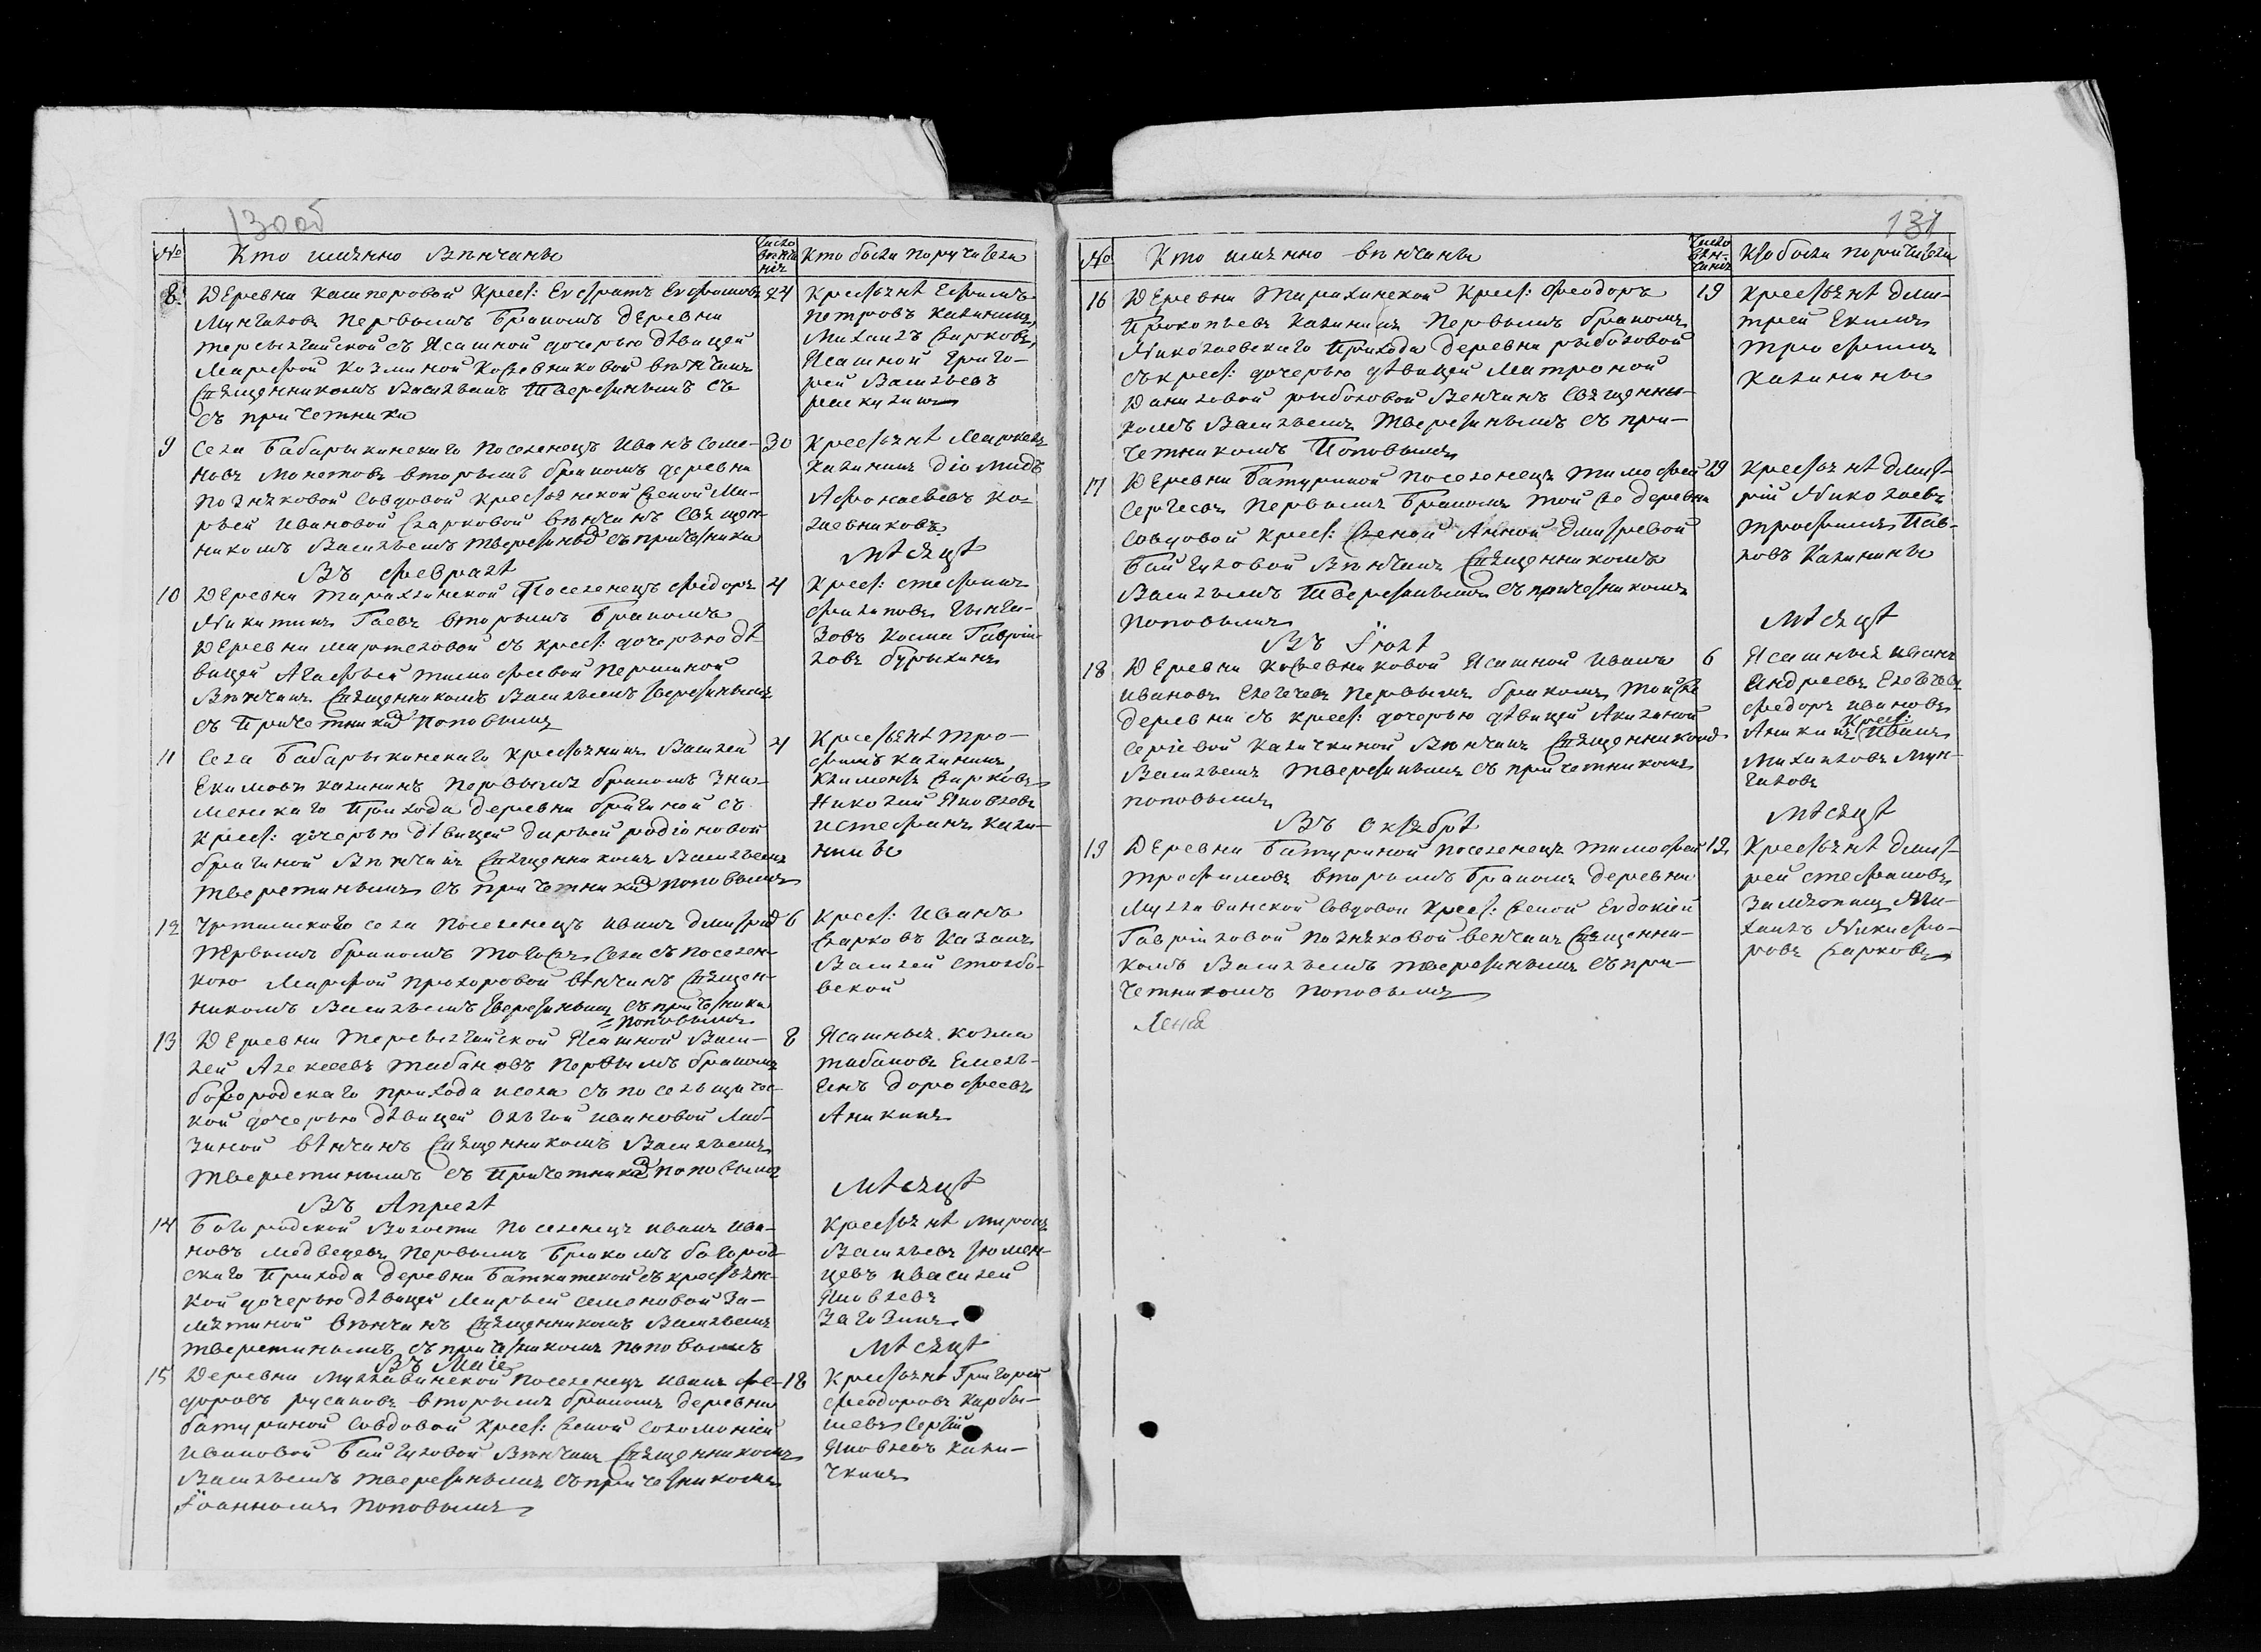 130 об
№ Кто имянно венчаны Число венчания Кто были поручители
8. Деревни Кашперовой Крест: Евстратъ 24
Мунгаловъ первымъ бракомъ деревни
съ Ясашной дочерью дѣвицей
Марфой Козминой Кожевниковой вѣнчанъ
Священникомъ Васильемъ Тверетинымъ съ
съ причетники
Крестьянѣ Ефремъ
Петровъ Калининъ,
Михаилъ Жарковъ,
Ясашной Григо-
рей Васильевъ
9 Села Бабарыкинскаго Поселенецъ Иванъ Семе- 30
новъ вторымъ бракомъ деревни
Позняковой со вдовой Крестьянской женой Ма-
рьей Ивановой Жарковой вѣнчанъ Священ-
никомъ Васильемъ Тверетинымъ съ причетники
Крестьянѣ Маркелъ
Калининъ Діомидъ
Афонасьевъ Ко-
жевниковъ
Въ Февралѣ
Мѣсяцѣ
10 Деревни Тараклинской Поселенецъ Федоръ 4
Никитинъ Гаевъ вторымъ бракомъ
Деревни Мартеловой съ крест: дочерью дѣ-
вицей Агафьей Тимофеевой Першиной
Вѣнчанъ Священникомъ Васильемъ Тверетинымъ
съ Причетникомъ Поповымъ
Крест: Стефанъ
Филиповъ
Козма Гаврі-
ловъ Бурыхинъ
11 Села Бабарыкинскаго Крестьянинъ Василей 4
Екимовъ Калининъ первымъ бракомъ Зна-
менскаго Прихода деревни Брагиной съ
Крест: дочерью дѣвицей Дарьей Родіоновой
Брагиной Вѣнчанъ Священникомъ Васильемъ
Тверетинымъ съ причетникомъ Поповымъ
Крестьянѣ Тро-
фимъ Калининъ,
Климентъ Жарковъ
Николай Яковлевъ
и Стефанъ Кали-
нины
12 Уртамскаго села Поселенецъ Иванъ 6
Первымъ бракомъ того жъ села съ поселен-
кою Марфой Прохоровой вѣнчанъ Священ-
никомъ Васильемъ Тверетинымъ съ причетники
Поповымъ
Крест: Иванъ
Жарковъ Казакъ
Василей Столбо-
вской
13 Деревни Ясашной Васи- 8
лей Алексеевъ Табановъ первымъ бракомъ
Богородскаго прихода и села съ
кой дочерью дѣвицей Ольгой Ивановой
зиной вѣнчанъ Священникомъ Васильемъ
Тверетинымъ съ Причетникомъ Поповымъ
Ясашныя Козма
Табановъ Емель-
янъ Дорофеевъ
Аникинъ
Въ Апрелѣ
Мѣсяцѣ
14 Богородской Волости Поселенецъ Иванъ Ива-
новъ Медведевъ первымъ бракомъ Богород-
скаго Прихода деревни Баткатской съ крестьянс-
кой дочерью дѣвицей Марьей Семеновой За-
мѣтиной вѣнчанъ Священникомъ Васильемъ
Тверетинымъ съ причетникомъ Поповымъ
Крестьянѣ Миронъ
Васильевъ Тюмен-
цевъ и Василей
Яковлевъ
Загозинъ
Въ Маіе
Мѣсяцѣ
15 Деревни Мухлавинской Поселенецъ Иванъ Фе- 18
доровъ Русаковъ вторымъ бракомъ деревни
Батуриной со вдовой Крест: женой Соломоніей
Ивановой Байгуловой Вѣнчанъ Священникомъ
Васильемъ Тверетинымъ съ причетникомъ
Іоанномъ Поповымъ
Крестьянѣ Григорей
Феодоровъ Карбы-
шевъ Сергій
Яковлевъ Кали-
чкинъ
131
№ Кто имянно венчаны Число венчания Кто были поручители
16 Деревни Тараклинской Крест: Феодоръ 19
Прокопьевъ Калининъ первымъ бракомъ
Николаевскаго Прихода деревни Рыболовой
съ крест: дочерью дѣвицей Матроной
Даниловой Рыболовой Венчанъ Священни-
комъ Васильемъ Тверетинымъ съ при-
четникомъ Поповымъ
Крестьянѣ Дми-
трей Екимъ
Трофимъ
Калинины
17 Деревни Батуриной Поселенецъ Тимофей 19
Сергеевъ первымъ бракомъ той же деревни
со вдовой Крест: женой Анной Дмитревой
Байгуловой Вѣнчанъ Священникомъ
Васильемъ Тверетинымъ съ причетникомъ
Поповымъ
Крестьянѣ Дмит-
рій Николаевъ
Трофимъ Пав-
ловъ Калинины
Въ Іюлѣ
Мѣсяцѣ
18 Деревни Кожевниковой Ясашной Иванъ 6
Ивановъ Елегечевъ первымъ бракомъ той же
деревни съ крест: дочерью дѣвицей Акилиной
Сергіевой Каличкиной Вѣнчанъ Священникомъ
Васильемъ Тверетинымъ съ причетникомъ
Поповымъ
Ясашныя Иванъ
Андреевъ Елегечевъ
Федоръ Ивановъ
Аникинъ Крест: Иванъ
Михаиловъ Мун-
галовъ
Въ Октябрѣ
Мѣсяцѣ
19 Деревни Батуриной Поселенецъ Тимофей 12
Трофимовъ вторымъ бракомъ деревни
Мухлавинской со вдовой Крест: женой Евдокіей
Гавріловой Позняковой венчанъ Священни-
комъ Васильемъ Тверетинымъ съ при-
четникомъ Поповымъ
Крестьянѣ Дмит-
рей Стефановъ
Замятинъ Ми-
хаилъ Никифо-
ровъ Жарковъ